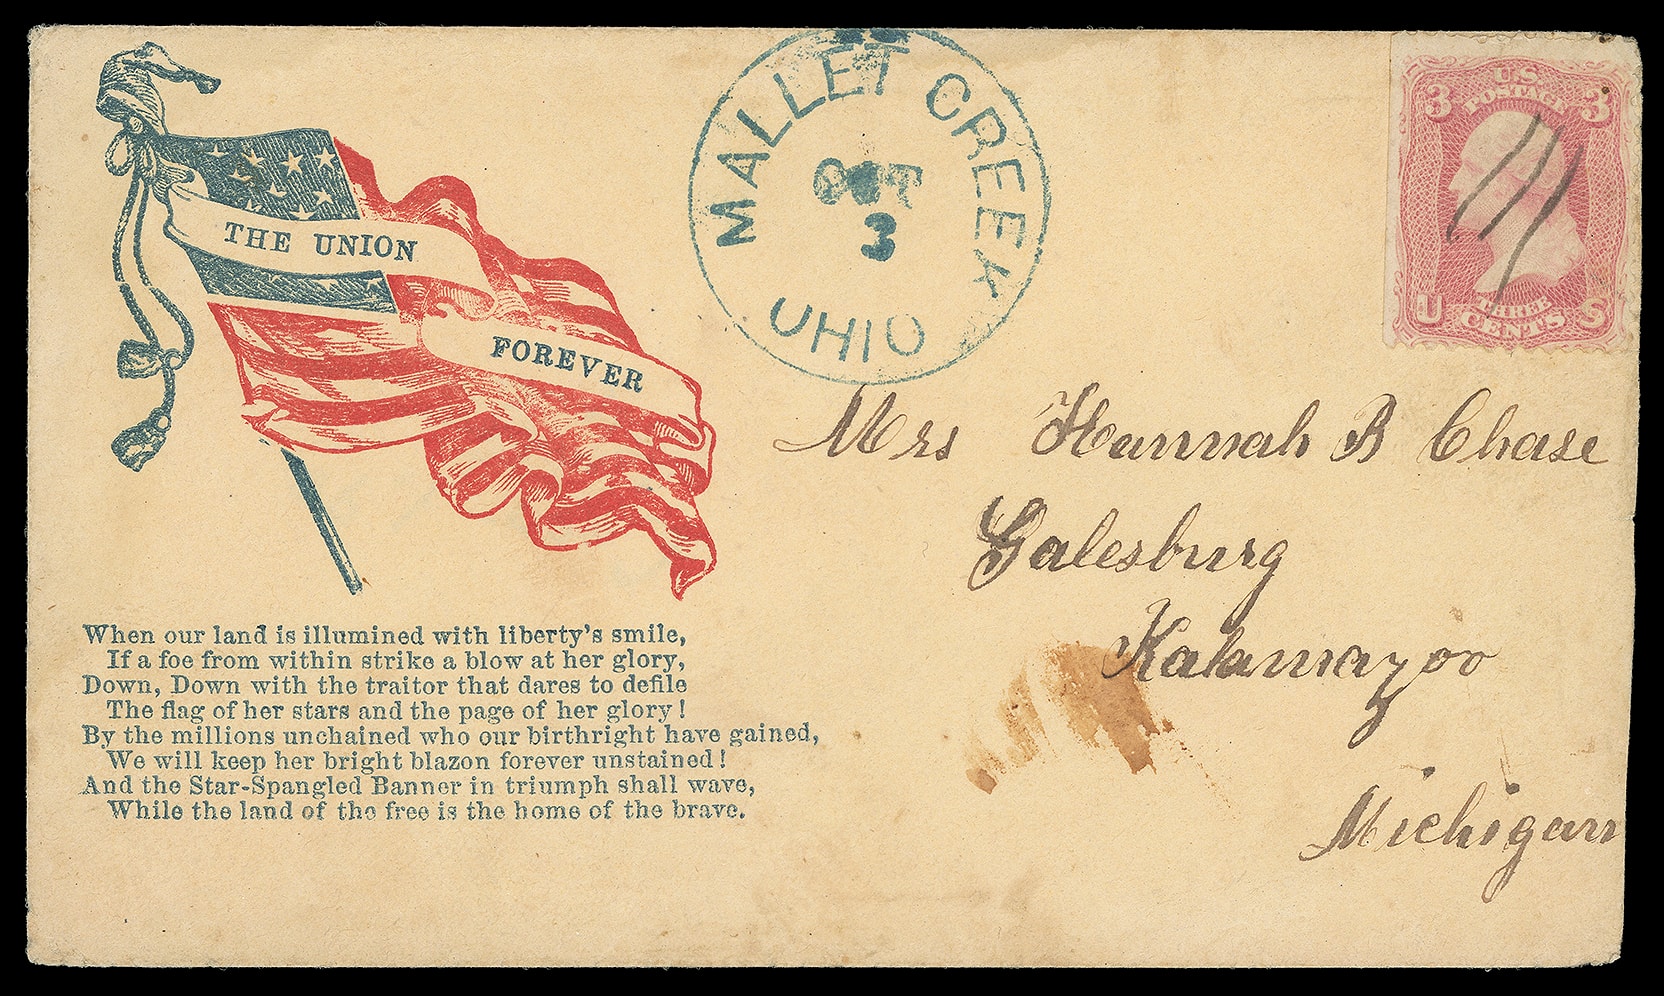 THE UNION
FOREVER
MALLET CREEK
OCT
3
OHIO
U.S.
POSTAGE
3 3
U THREE S
CENTS
Mrs Hannah B Chase
Galesburg
Kalamazoo
Michigan
When our land is illumined with liberty's smile,
If a foe from within strike a blow at her glory,
Down, Down with the traitor that dares to defile
The flag of her stars and the page of her glory!
By the millions unchained who our birthright have gained,
We will keep her bright blazon forever unstained!
And the Star-Spangled Banner in triumph shall wave,
While the land of the free is the home of the brave.